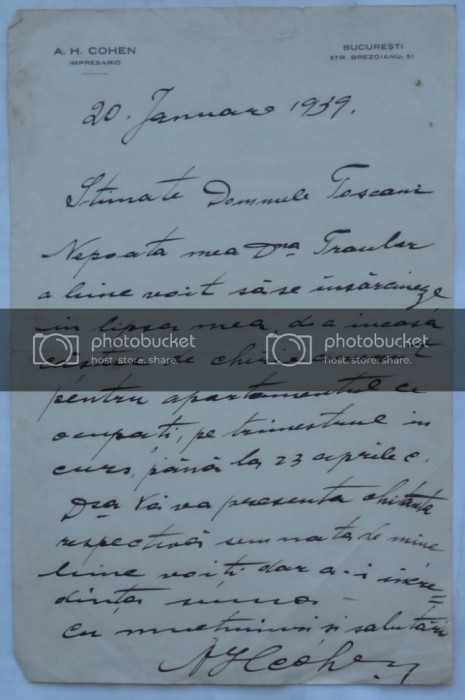 A. H. COHEN
IMPRESARIO
BUCUREȘTI
STR. BREZOIANU, 51
20. Januar 1939.
Stimate Domnule
Nepoata mea Dna
a bine voit să se însărcineze
în lipsa mea, de a încasa
de chirie
pentru apartamentul ce
ocupați, pe trimestrul în
curs, până la 23 aprilie c.
Dsa Vă va prezenta chitanța
respectivă semnată de mine
bine voiți dar a-i încre=
dința suma –
cu mulțumiri și salutări
A H Cohen
photobucket
host. store. share.
photobucket
host. store. share.